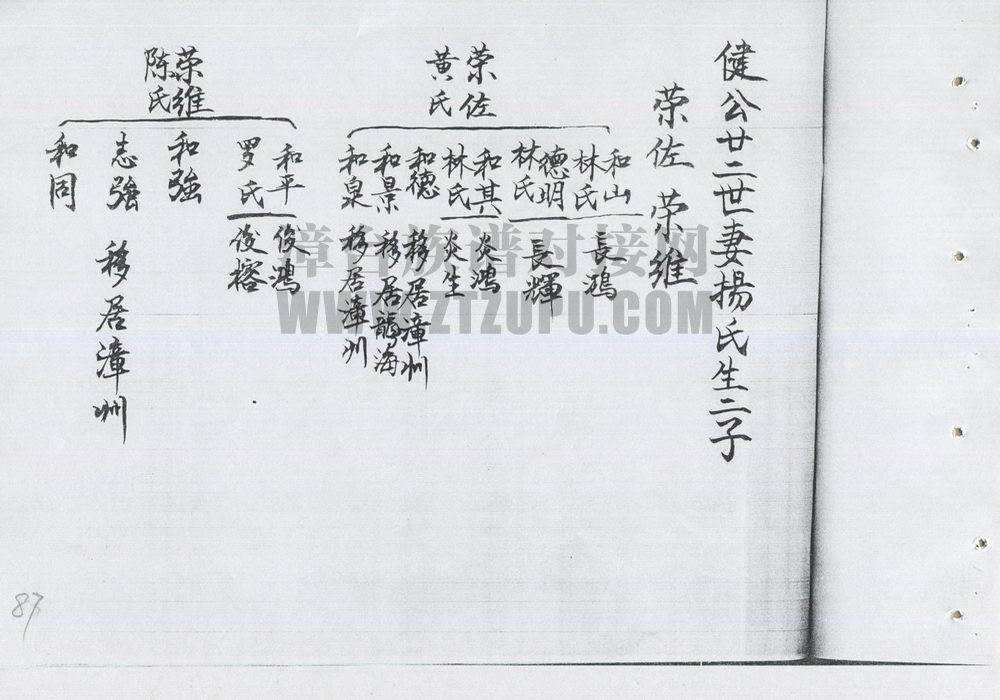 健公廿二世妻揚氏生二子
荣佐 荣维
荣佐
黄氏
和山
林氏
長鴻
德明
林氏
長輝
和其
林氏
炎鴻
炎生
和德 移居漳州
和景 移居龍海
和泉 移居漳州
荣维
陈氏
和平
罗氏
俊鴻
俊榕
和強
志強 移居漳州
和同
漳台族谱对接网
WWW.ZTZUPU.COM
87